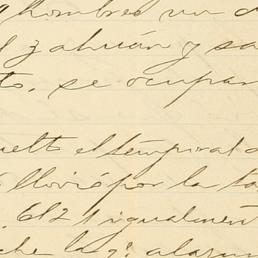 hombres un
zahuán y sa
to, se ocupan
uelto el temporal
llovió por la ta
612 igualmen
che la